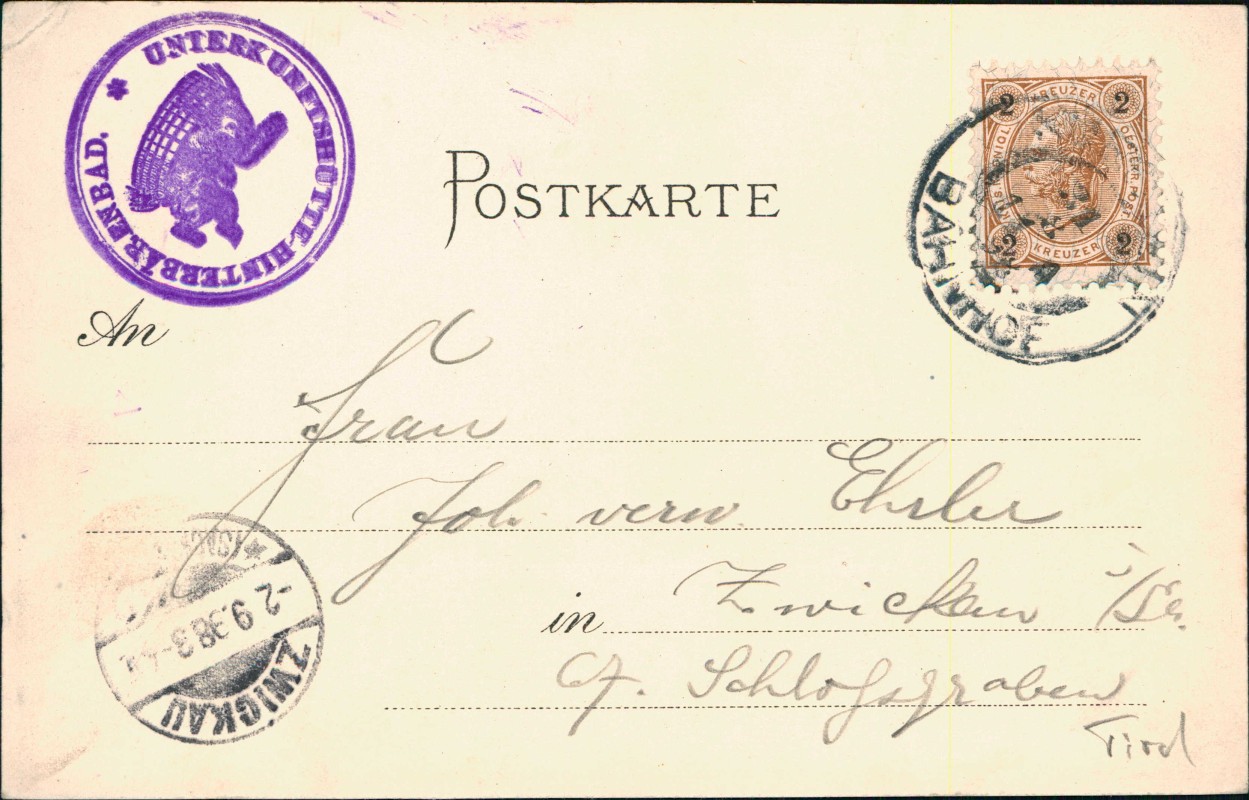 UNTERKUNFTSHÜTTE-HINTERBÄRENBAD. *
POSTKARTE
2 KREUZER 2
OESTERR. POST
2 KREUZER 2
BAHNHOF
An
Frau
Joh. verw. Ehrler
in Zwickau i/Sa.
Schloßgraben
Tirol
-2.9.98 3-4N.
ZWICKAU